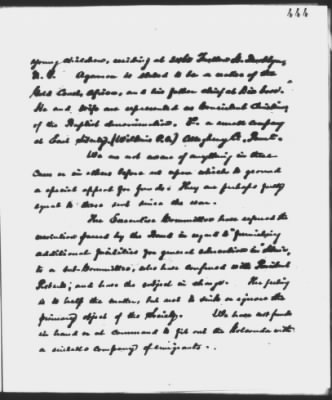 444
young children, residing at Fulton St. Brooklyn,
N.Y. Agamon is stated to be a native of the
Gold Coast, Africa, and his father chief at
He and wife are represented as consistent Christians
of the Baptist denomination. a small company
at East Liberty, (Wilkins P.O.) Allegheny Co. Penn.
We are not aware of anything in these
cases or in others before us upon which to ground
a special appeal for funds. They are perhaps fully
equal to those sent since the war.
The Executive Committee have referred the
resolution passed by the Board in regard to "furnishing
additional facilities for general education in Liberia",
to a sub-Committee, who have conferred with President
Roberts, and have the subject in charge. The feeling
is to help the matter, but not to sink or ignore the
primary object of the Society. We have not funds
in hand or at command to fit out the Golconda with
a suitable company of emigrants.